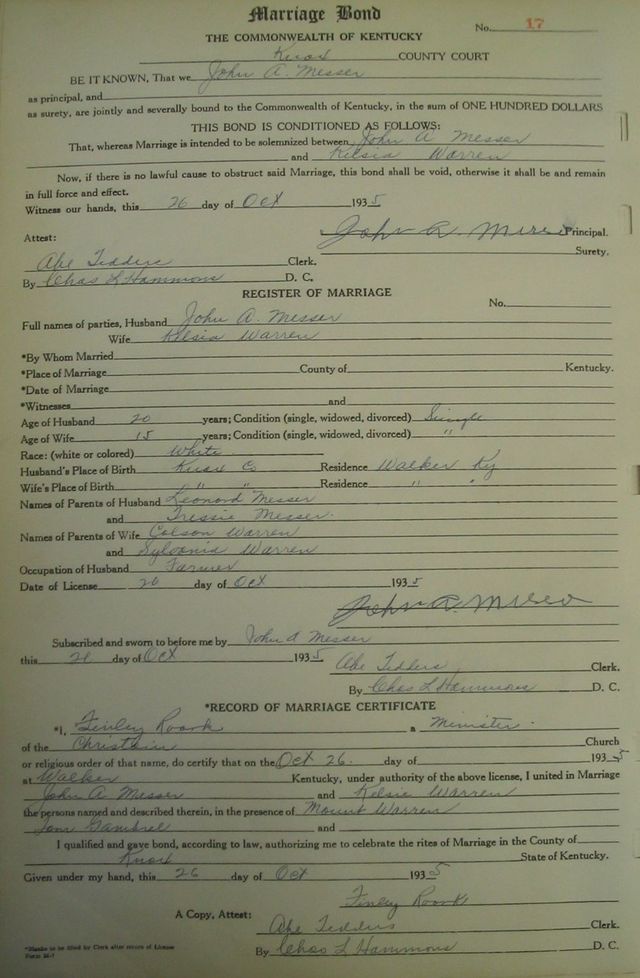 Marriage Bond
No. 17
THE COMMONWEALTH OF KENTUCKY
Knox COUNTY COURT
BE IT KNOWN, That we John A. Messer
as principal, and
as surety, are jointly and severally bound to the Commonwealth of Kentucky, in the sum of ONE HUNDRED DOLLARS
THIS BOND IS CONDITIONED AS FOLLOWS:
That, whereas Marriage is intended to be solemnized between John A Messer
and Kelsia Warren
Now, if there is no lawful cause to obstruct said Marriage, this bond shall be void, otherwise it shall be and remain
in full force and effect.
Witness our hands, this 26 day of Oct 1935
Attest: John Principal.
Surety.
Abe Tedders Clerk.
By Chas L Hammons D. C.
REGISTER OF MARRIAGE
No.
Full names of parties, Husband John A. Messer
Wife Kelsia Warren
*By Whom Married
*Place of Marriage County of Kentucky.
*Date of Marriage
*Witnesses and
Age of Husband 20 years; Condition (single, widowed, divorced) Single
Age of Wife 15 years; Condition (single, widowed, divorced) "
Race: (white or colored) White
Husband's Place of Birth Knox Co Residence Walker Ky
Wife's Place of Birth " " Residence " "
Names of Parents of Husband Leonord Messer
and Tressie Messer.
Names of Parents of Wife Colson Warren
and Sylvania Warren
Occupation of Husband Farmer
Date of License 26 day of Oct 1935
John
Subscribed and sworn to before me by John A Messer
this day of Oct 1935
Abe Tedders Clerk.
By Chas L Hammons D. C.
*RECORD OF MARRIAGE CERTIFICATE
*I, Finley Roark a Minister.
of the Christain Church
or religious order of that name, do certify that on the Oct 26. day of 1935
at Walker Kentucky, under authority of the above license, I united in Marriage
John A Messer and Kelsie Warren
the persons named and described therein, in the presence of Mount Warren
Tom Gambrel and
I qualified and gave bond, according to law, authorizing me to celebrate the rites of Marriage in the County of
Knox State of Kentucky.
Given under my hand, this 26 day of Oct 1935
Finley Roark
A Copy, Attest: Abe Tedders Clerk.
By Chas L Hammons D. C.
*Blanks to be filled by Clerk after return of License